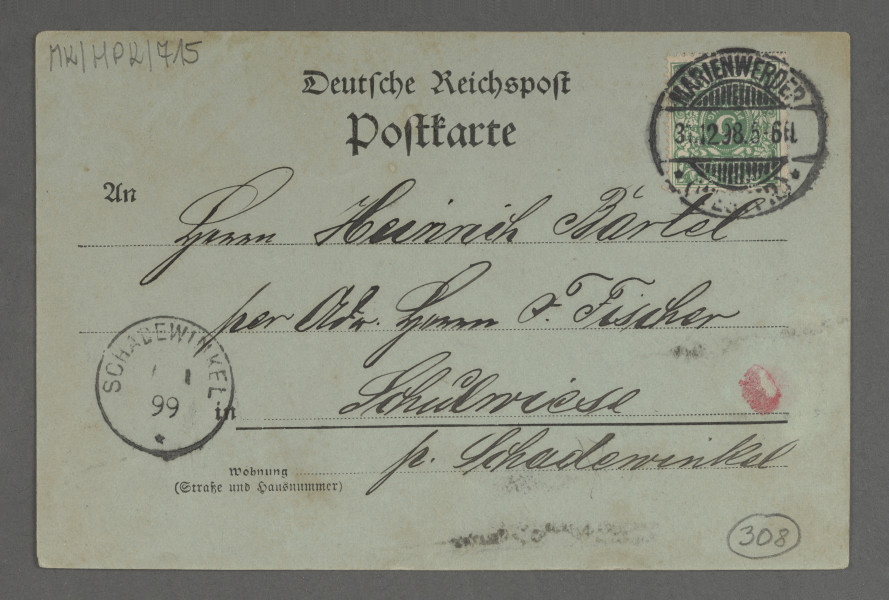 MK/MPK/715
Deutsche Reichspost
Postkarte
MARIENWERDER
31.12.98.5-6N.
* (WESTPR.) *
5
An
Herrn Heinrich Bartel
per Adr. Herrn F. Fischer
SCHADEWINKEL
1 1
99
*
in Schulwiese
p. Schadewinkel
Wohnung
(Straße und Hausnummer)
308